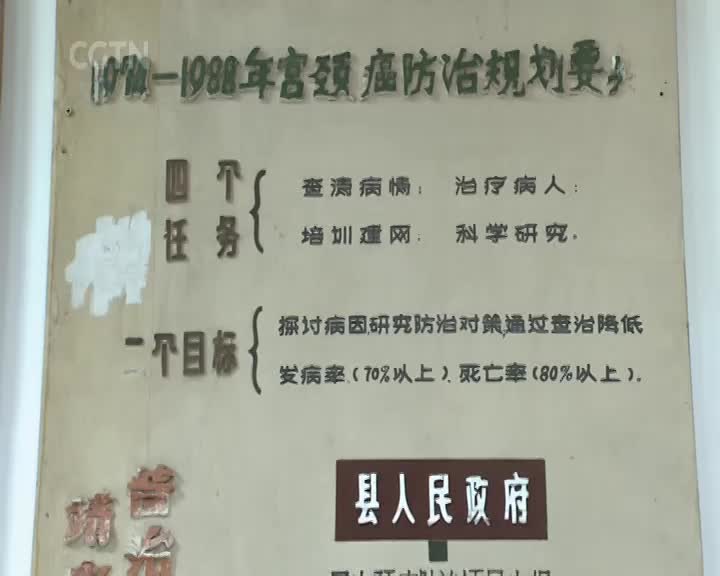 CCTN
—1988年宫颈癌防治规划要
四个任务
查清病情; 治疗病人;
培训建网; 科学研究.
二个目标
探讨病因,研究防治对策,通过查治降低
发病率(70%以上)、死亡率(80%以上).
县人民政府
普治
靖